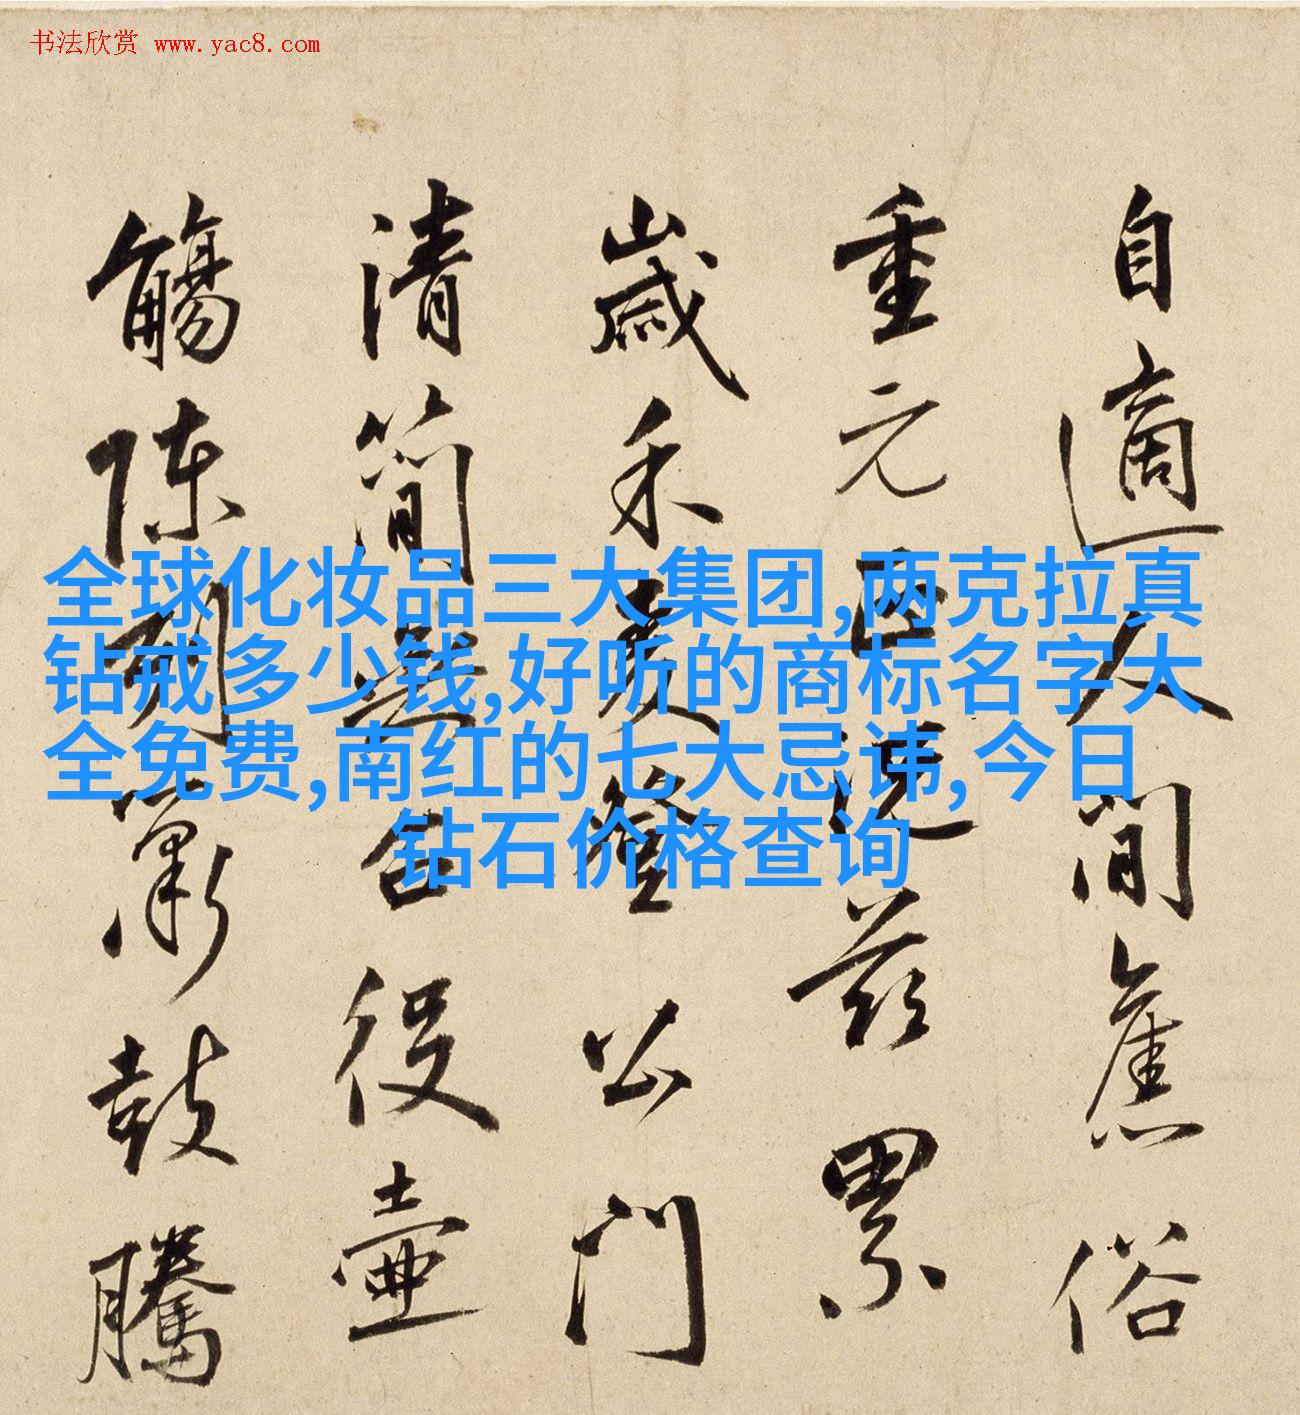 书法欣赏 www.yac8.com
自適人間舊俗
重元正況茲累
歲禾麥登公門
清簡無役壺
觴陳列簫鼓騰
全球化妆品三大集团,两克拉真
钻戒多少钱,好听的商标名字大
全免费,南红的七大忌讳,今日
钻石价格查询